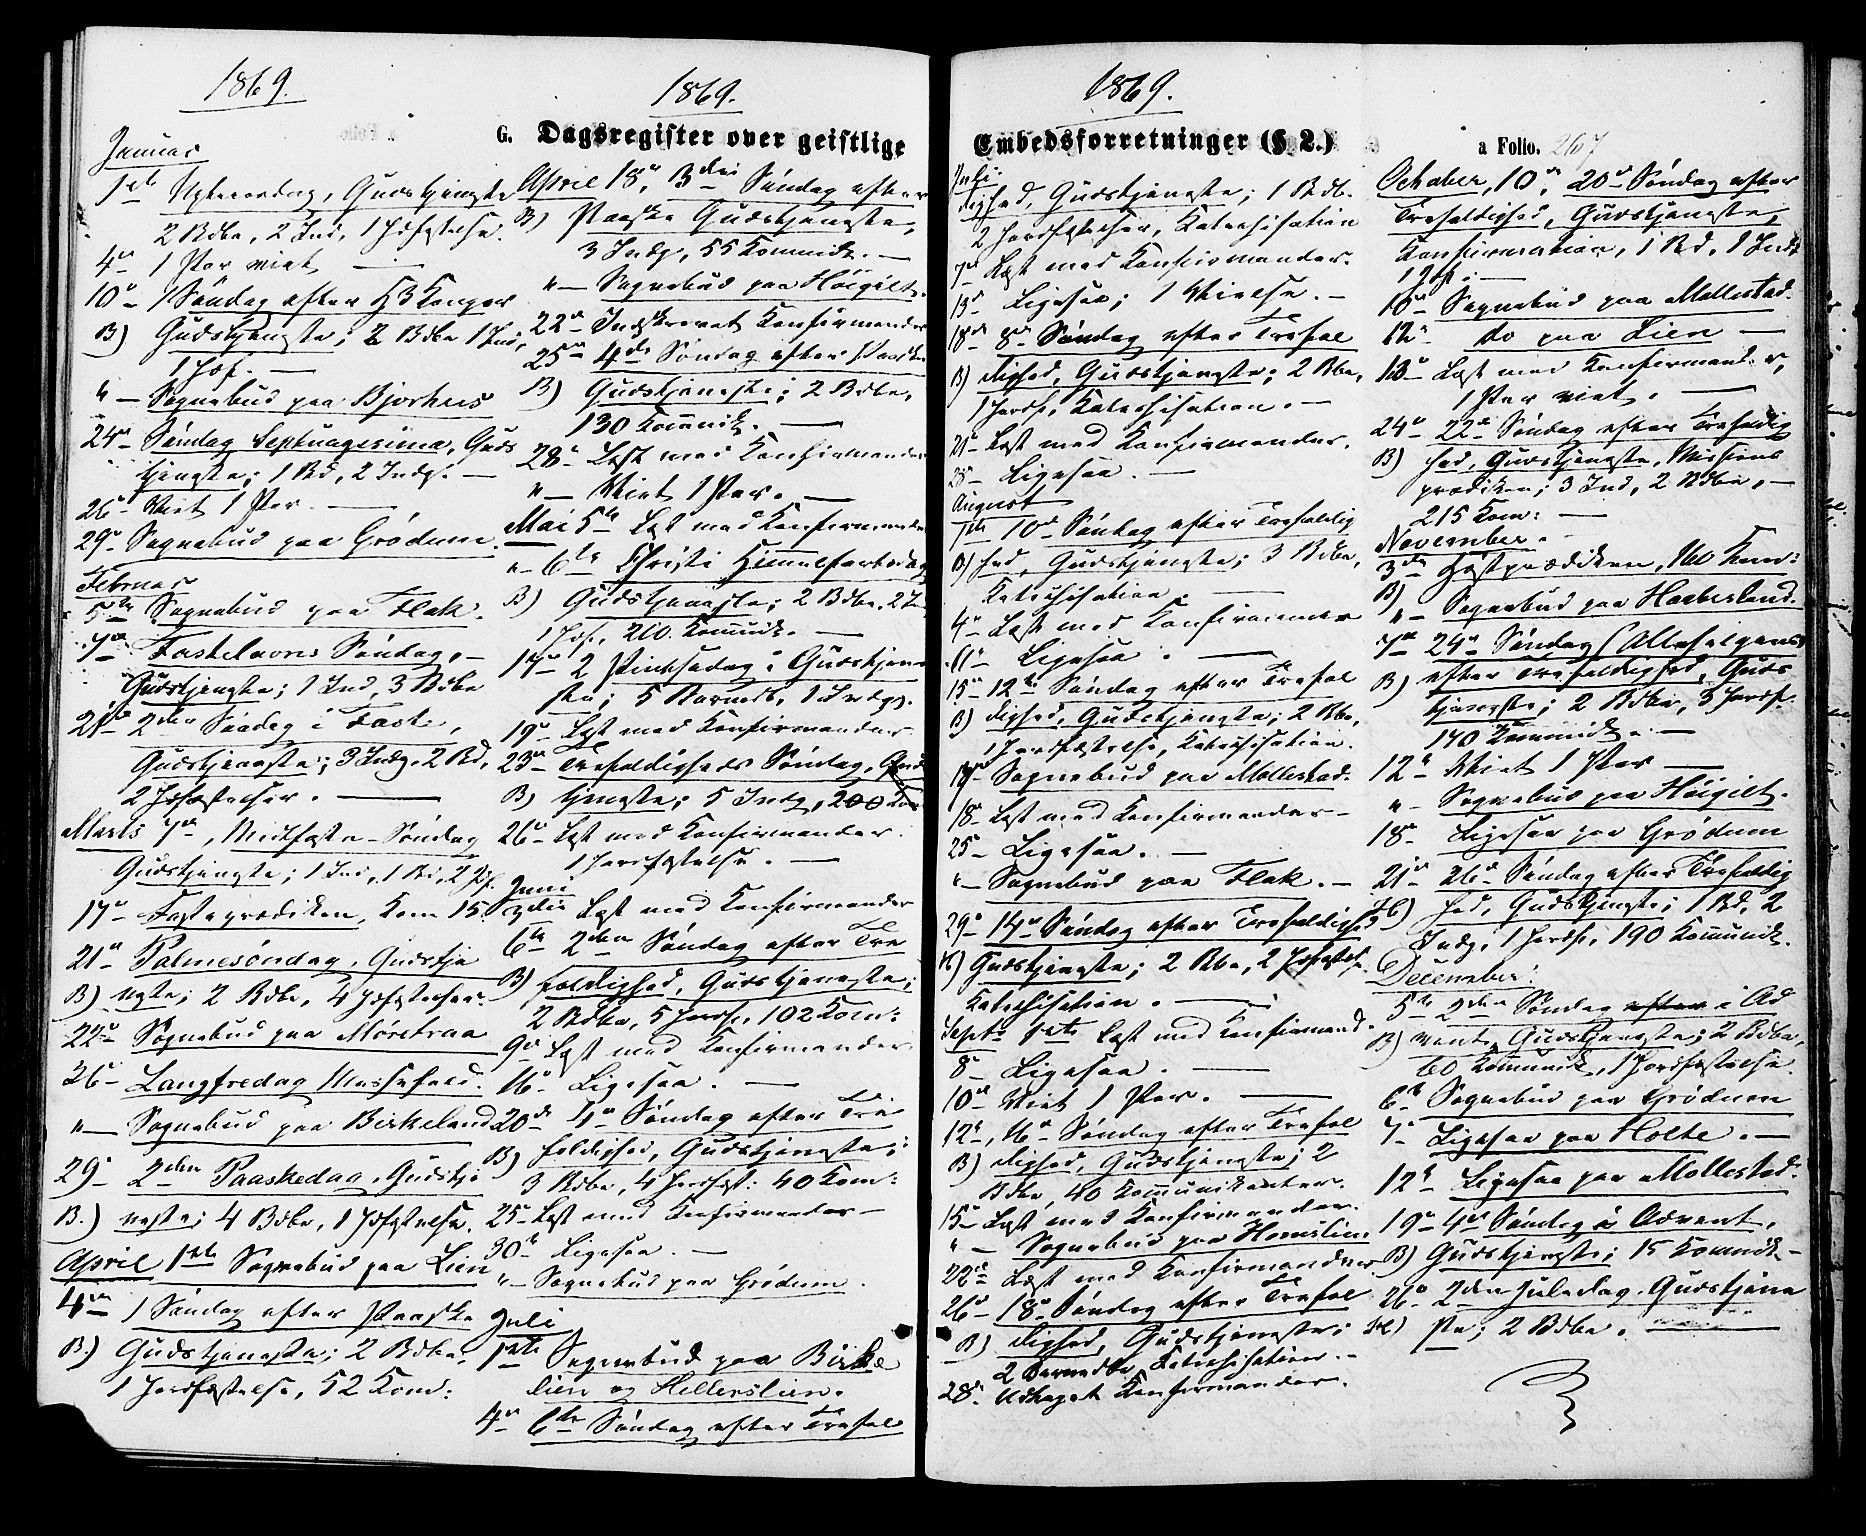 1869.
Januar
1ste Nytaarsdag, Gudstjeneste
2 Bdbe, 2 Ind, 1 Jofæstelse.
4de 1 Par viet —
10de 1 Søndag efter H 3 Konger
B) Gudstjeneste; 2 Bdbe 1 Ind,
1 Jof. —
" — Sognebud paa Bjorhus
24de Søndag Septuagesima, Guds
tjeneste; 1 Bd, 2 Indg. —
26de Viet 1 Par. —
29de Sognebud paa Grødum.
Februar
5te Sognebud paa Flak.
7de Fastelavns Søndag, —
Gudstjeneste; 1 Ind, 3 Bdbe
21de 2den Søndag i Faste,
Gudstjeneste; 3 Indg. 2 Bd,
2 Jofæstelser. —
Marts 7de, Midfaste-Søndag
Gudstjeneste; 1 Ind, 1 Bd, 2 Jof.
17de Fasteprædiken, Kom 15.
21de Palmesøndag, Gudstje
B) neste; 2 Bdbe, 4 Jofæstelser.
22de Sognebud paa Moretraa
26 — Langfredag Messefald.
" — Sognebud paa Birkeland
29 — 2den Paaskedag, Gudstje
B.) neste; 4 Bdbe, 1 Jofæstelse.
April 1ste Sognebud paa Lien
4de 1 Søndag efter Paaske
B.) Gudstjeneste; 2 Bdbe,
1 Jordfæstelse, 52 Kom:
1869.
G. Dagsregister over geistlige
April 18de, 3die Søndag efter
B) Paaske Gudstjeneste,
3 Indg, 55 Kommunik. —
" — Sognebud paa Høigilt.
22de Indskrevet Konfirmander
25de 4de Søndag efter Paaske
B) Gudstjeneste; 2 Bdbe,
130 Kommunik. —
28de Læst med Konfirmander
" — Viet 1 Par. —
Mai 5te Læst med Konfirmander
" — 6te Christi Himmelfartsdag
B) Gudstjeneste; 2 Bdbe, 2 Ind
1 Jof., 210 Kommunik. —
17de 2 Pinksedag i Gudstjene
ste; 5 Barnedb, 1 Indg.
19de Læst med Konfirmander
23de Trefoldigheds Søndag, Guds
B) tjeneste; 5 Indg, 200 Kom
26de Læst med Konfirmander.
1 Jordfæstelse. —
Juni
3die Læst med Konfirmander
6te 2den Søndag efter Tre
B) foldighed, Gudstjeneste;
2 Bdbe, 5 Jordf, 102 Kom:
9de Læst med Konfirmander
16de Ligesaa. —
20de 4de Søndag efter Tre
B) foldighed, Gudstjeneste;
3 Bdbe, 4 Jordfæst: 40 Kom:
25de Læst med Konfirmander —
30te Ligesaa. —
" — Sognebud paa Grødum.
Juli
1ste Sognebud paa Birke
lien og Hellerslien.
4de 6te Søndag efter Trefol
1869.
Embedsforretninger (§ 2.)
Juli.
dighed, Gudstjeneste; 1 Bdb.
2 Jordfæstelser, Katechisation
7de Læst med Konfirmander.
13de Ligesaa; 1 Vielse. —
18de 8de Søndag efter Trefol
B) dighed, Gudstjeneste; 2 Bbe,
1 Jordf, Katechisation. —
21de Læst med Konfirmander.
28 — Ligesaa. —
August
1ste 10de Søndag efter Trefoldig
B) hed, Gudstjeneste; 3 Bdbe,
Katechisation. —
4de Læst med Konfirmander
11de Ligesaa. —
15de 12te Søndag efter Trefol
B) dighed, Gudstjeneste; 2 Bbe,
1 Jordfæstelse, Katechisation.
17de Sognebud paa Mollestad.
18de Læst med Konfirmander —
25 — Ligesaa. —
" — Sognebud paa Flak. —
29de 14de Søndag efter Trefoldighed
B) Gudstjeneste; 2 Bbe, 2 Jofæstels.
Katechisation. —
Septr 1ste Læst med Konfirmand.
8de Ligesaa. —
10de Viet 1 Par. —
12te, 16de Søndag efter Trefol
B) dighed, Gudstjeneste; 2
Bdbe, 40 Kommunikanter.
15de Læst med Konfirmander.
" — Sognebud paa Homslien
22de Læst med Konfirmander
26de 18de Søndag efter Trefol
B) dighed, Gudstjeneste;
2 Barnedbe, Katechisation. —
28de Udtaget Konfirmander.
a Folio. 267
October, 10de, 20de Søndag efter
Trefoldighed, Gudstjeneste,
Konfirmation, 1 Bd, 1 Indl
1 Jof: —
10de Sognebud paa Mollestad.
12te do paa Lien —
13de Læst med Konfirmander,
1 Par viet. —
24de 22de Søndag efter Trefoldig
B) hed, Gudstjeneste, Missions
prædiken; 3 Ind, 2 Bdbe, —
215 Kom: —
November.
3de Høstprædiken, 140 Kom:
B)
" Sognebud paa Haabesland.
7de 24de Søndag (Allehelgens)
B) efter Trefoldighed, Guds
tjeneste; 2 Bdbe, 3 Jordf.
140 Kommunik. —
12te Viet 1 Par —
" — Sognebud paa Høigilt.
18de Ligesaa paa Grødum
21de 26de Søndag efter Trefoldig
B) hed, Gudstjeneste; 1 Bd, 2
Indg, 1 Jordf, 190 Kommunik.
December.
5te 2den Søndag efter i Ad
B) vent, Gudstjeneste; 2 Bdbe,
60 Kommunik, 1 Jordfæstelse.
6te Sognebud paa Grødum
7de Ligesaa paa Holte. —
12te Ligesaa paa Mollestad.
19de 4de Søndag i Advent,
B) Gudstjeneste; 15 Kommunik —
26de 2den Juledag, Gudstjene
B) ste; 2 Bdbe. —